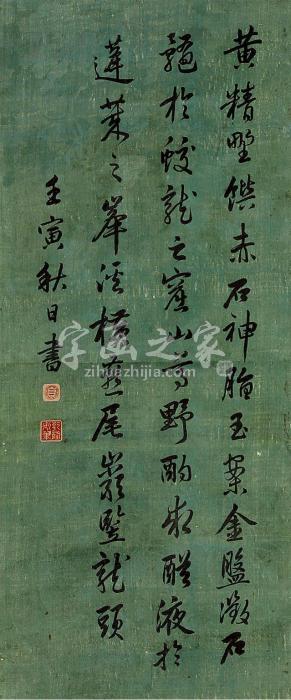 黄精野馔赤石神脂玉案金盘徵石
髓於蛟龙之窟山尊野酌求醴液於
蓬莱之峯溪横燕尾岩竖龙头
壬寅秋日书
字画之家
zihuazhijia.com